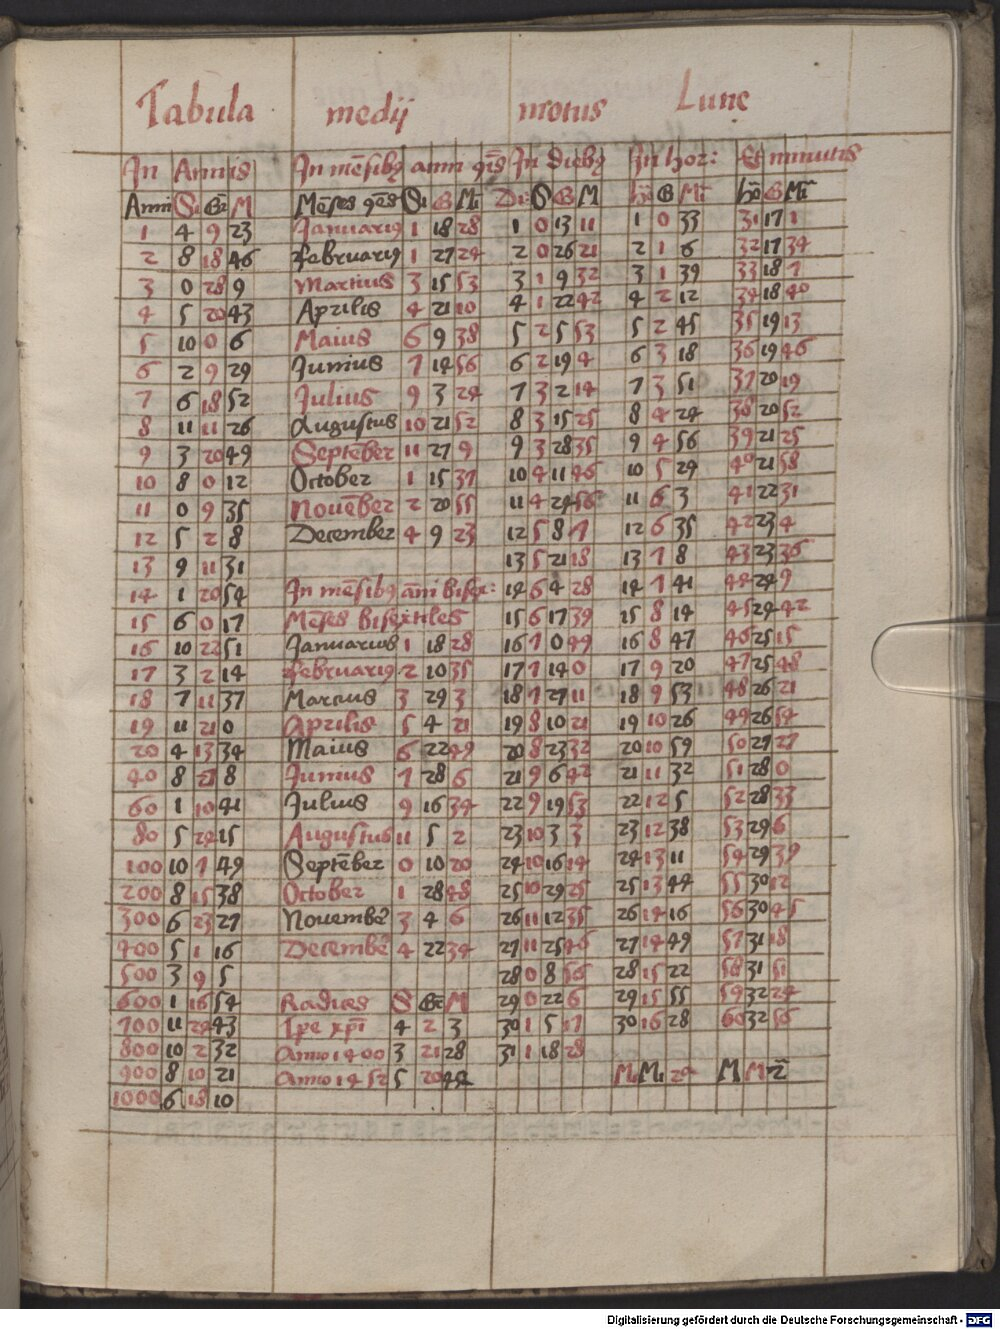 Tabula medij motus Lune
In Annis In mēsibꝯ anni ꝯīs In diebꝯ In hor: Et minutis
Anni Si Gr M Mēses ꝯēs Si G Mi Di: S G M ho G Mi ho G Mi
1 4 9 23 Januariꝯ 1 18 28 1 0 13 11 1 0 33 31 17 1
2 8 18 46 Februariꝯ 1 27 24 2 0 26 21 2 1 6 32 17 34
3 0 28 9 Martius 3 15 53 3 1 9 32 3 1 39 33 18 7
4 5 20 43 Aprilis 4 21 10 4 1 22 42 4 2 12 34 18 40
5 10 0 6 Maius 6 9 38 5 2 5 53 5 2 45 35 19 13
6 2 9 29 Junius 7 14 56 6 2 19 4 6 3 18 36 19 46
7 6 18 52 Julius 9 3 24 7 3 2 14 7 3 51 37 20 19
8 11 11 26 Augustus 10 21 52 8 3 15 25 8 4 24 38 20 52
9 3 20 49 Septēber 11 27 9 9 3 28 35 9 4 56 39 21 25
10 8 0 12 October 1 15 37 10 4 11 46 10 5 29 40 21 58
11 0 9 35 Nouēber 2 20 55 11 4 24 56 11 6 3 41 22 31
12 5 2 8 December 4 9 23 12 5 8 7 12 6 35 42 23 4
13 9 11 31 13 5 21 18 13 7 8 43 23 36
14 1 20 54 In mēsibꝯ āni bisex: 14 6 4 28 14 7 41 44 24 9
15 6 0 17 Mēses bisextiles 15 6 17 39 15 8 14 45 24 42
16 10 22 51 Januarius 1 18 28 16 7 0 49 16 8 47 46 25 15
17 3 2 14 Februariꝯ 2 10 35 17 7 14 0 17 9 20 47 25 48
18 7 11 37 Marcius 3 29 3 18 7 27 11 18 9 53 48 26 21
19 11 21 0 Aprilis 5 4 21 19 8 10 21 19 10 26 49 26 54
20 4 13 34 Maius 6 22 49 20 8 23 32 20 10 59 50 27 27
40 8 27 8 Junius 7 28 6 21 9 6 42 21 11 32 51 28 0
60 1 10 41 Julius 9 16 34 22 9 19 53 22 12 5 52 28 33
80 5 24 15 Augustus 11 5 2 23 10 3 3 23 12 38 53 29 6
100 10 7 49 Septēber 0 10 20 24 10 16 14 24 13 11 54 29 39
200 8 15 38 October 1 28 48 25 10 29 25 25 13 44 55 30 12
300 6 23 27 Nouembē 3 4 6 26 11 12 35 26 14 16 56 30 45
400 5 1 16 Decembē 4 22 34 27 11 25 46 27 14 49 57 31 18
500 3 9 5 28 0 8 56 28 15 22 58 31 51
600 1 16 54 Radices S Gr M 29 0 22 6 29 15 55 59 32 24
700 11 24 43 Tpe xpi 4 2 3 30 1 5 17 30 16 28 60 32 56
800 10 2 32 Anno 1400 3 21 28 31 1 18 28
900 8 10 21 Anno 1452 5 20 42 M Mi 2a M M 2
1000 6 18 10
Digitalisierung gefördert durch die Deutsche Forschungsgemeinschaft - DFG